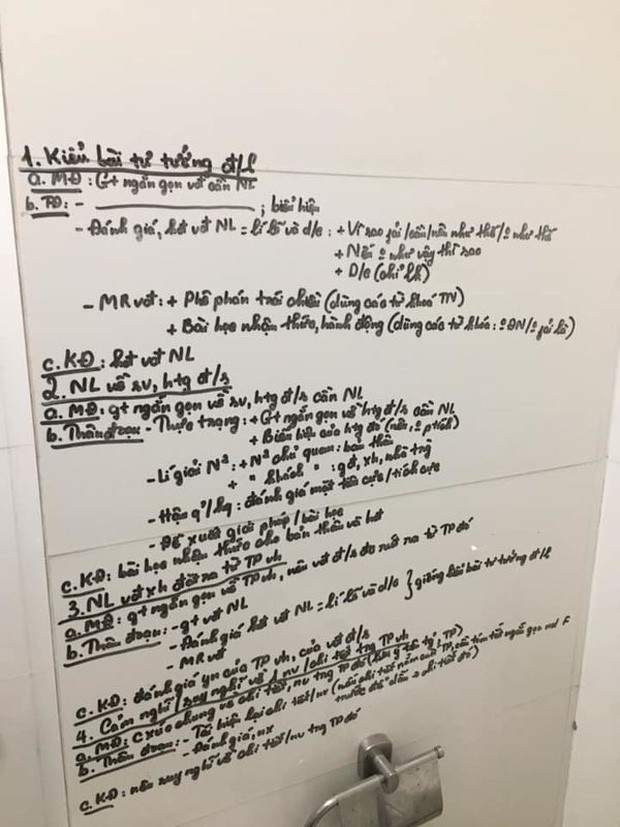 1. Kiểu bài tư tưởng đ/l
a. MĐ: G+ ngắn gọn vđ cần NL
b. TĐ: - ; biểu hiện
- Đánh giá, kết vđ NL = lí lẽ và d/c: + Vì sao fải/cần/nên như thế/º như thế
+ Nếu º như vậy thì sao
+ D/c (chỉ
- MR vđ: + Phê phán trái chiều (dùng các từ khoá TN)
+ Bài học nhận thức, hành động (dùng các từ khóa: º ĐN/º fải là)
c. KĐ: kết vđ NL
2. NL về sv, htg đ/s
a. MĐ: gt ngắn gọn về sv, htg đ/s cần NL
b. Thân đoạn - Thực trạng: + G+ ngắn gọn về htg đ/s cần NL
+ Biểu hiện của htg đó (nêu, º ptích)
- Lí giải Nº: + Nº chủ quan: bản thân
+ " khách " : gđ, xh, nhà trg
- Hậu q'/kq: đánh giá mặt tiêu cực/tích cực
- Đề xuất giải pháp/bài học
c. KĐ: bài học nhận thức cho bản thân và
3. NL vđ xh đặt ra từ TP vh
a. MĐ: gt ngắn gọn về TP vh, nêu vđ đ/s đc rút ra từ TP đó
b. Thân đoạn: - gt vđ NL
- Đánh giá kết vđ NL = lí lẽ và d/c } giống kiểu bài tư tưởng đ/l
- MR vđ
c. KĐ: đánh giá ýn của TP vh, của vđ đ/s
4. Cảm nghĩ/suy nghĩ về 1 nv/chi tiết trg TP vh
a. MĐ: C xúc chung về chi tiết, nv trg TP đó (tên tg', TP)
b. Thân đoạn: - Tái hiện lại chi tiết/nv (nếu chi tiết nằm cuối TP, cần tóm tắt ngắn gọn
trước để dẫn chi tiết đó)
- Đánh giá, nx
c. KĐ: nêu suy nghĩ về chi tiết/nv trg TP đó